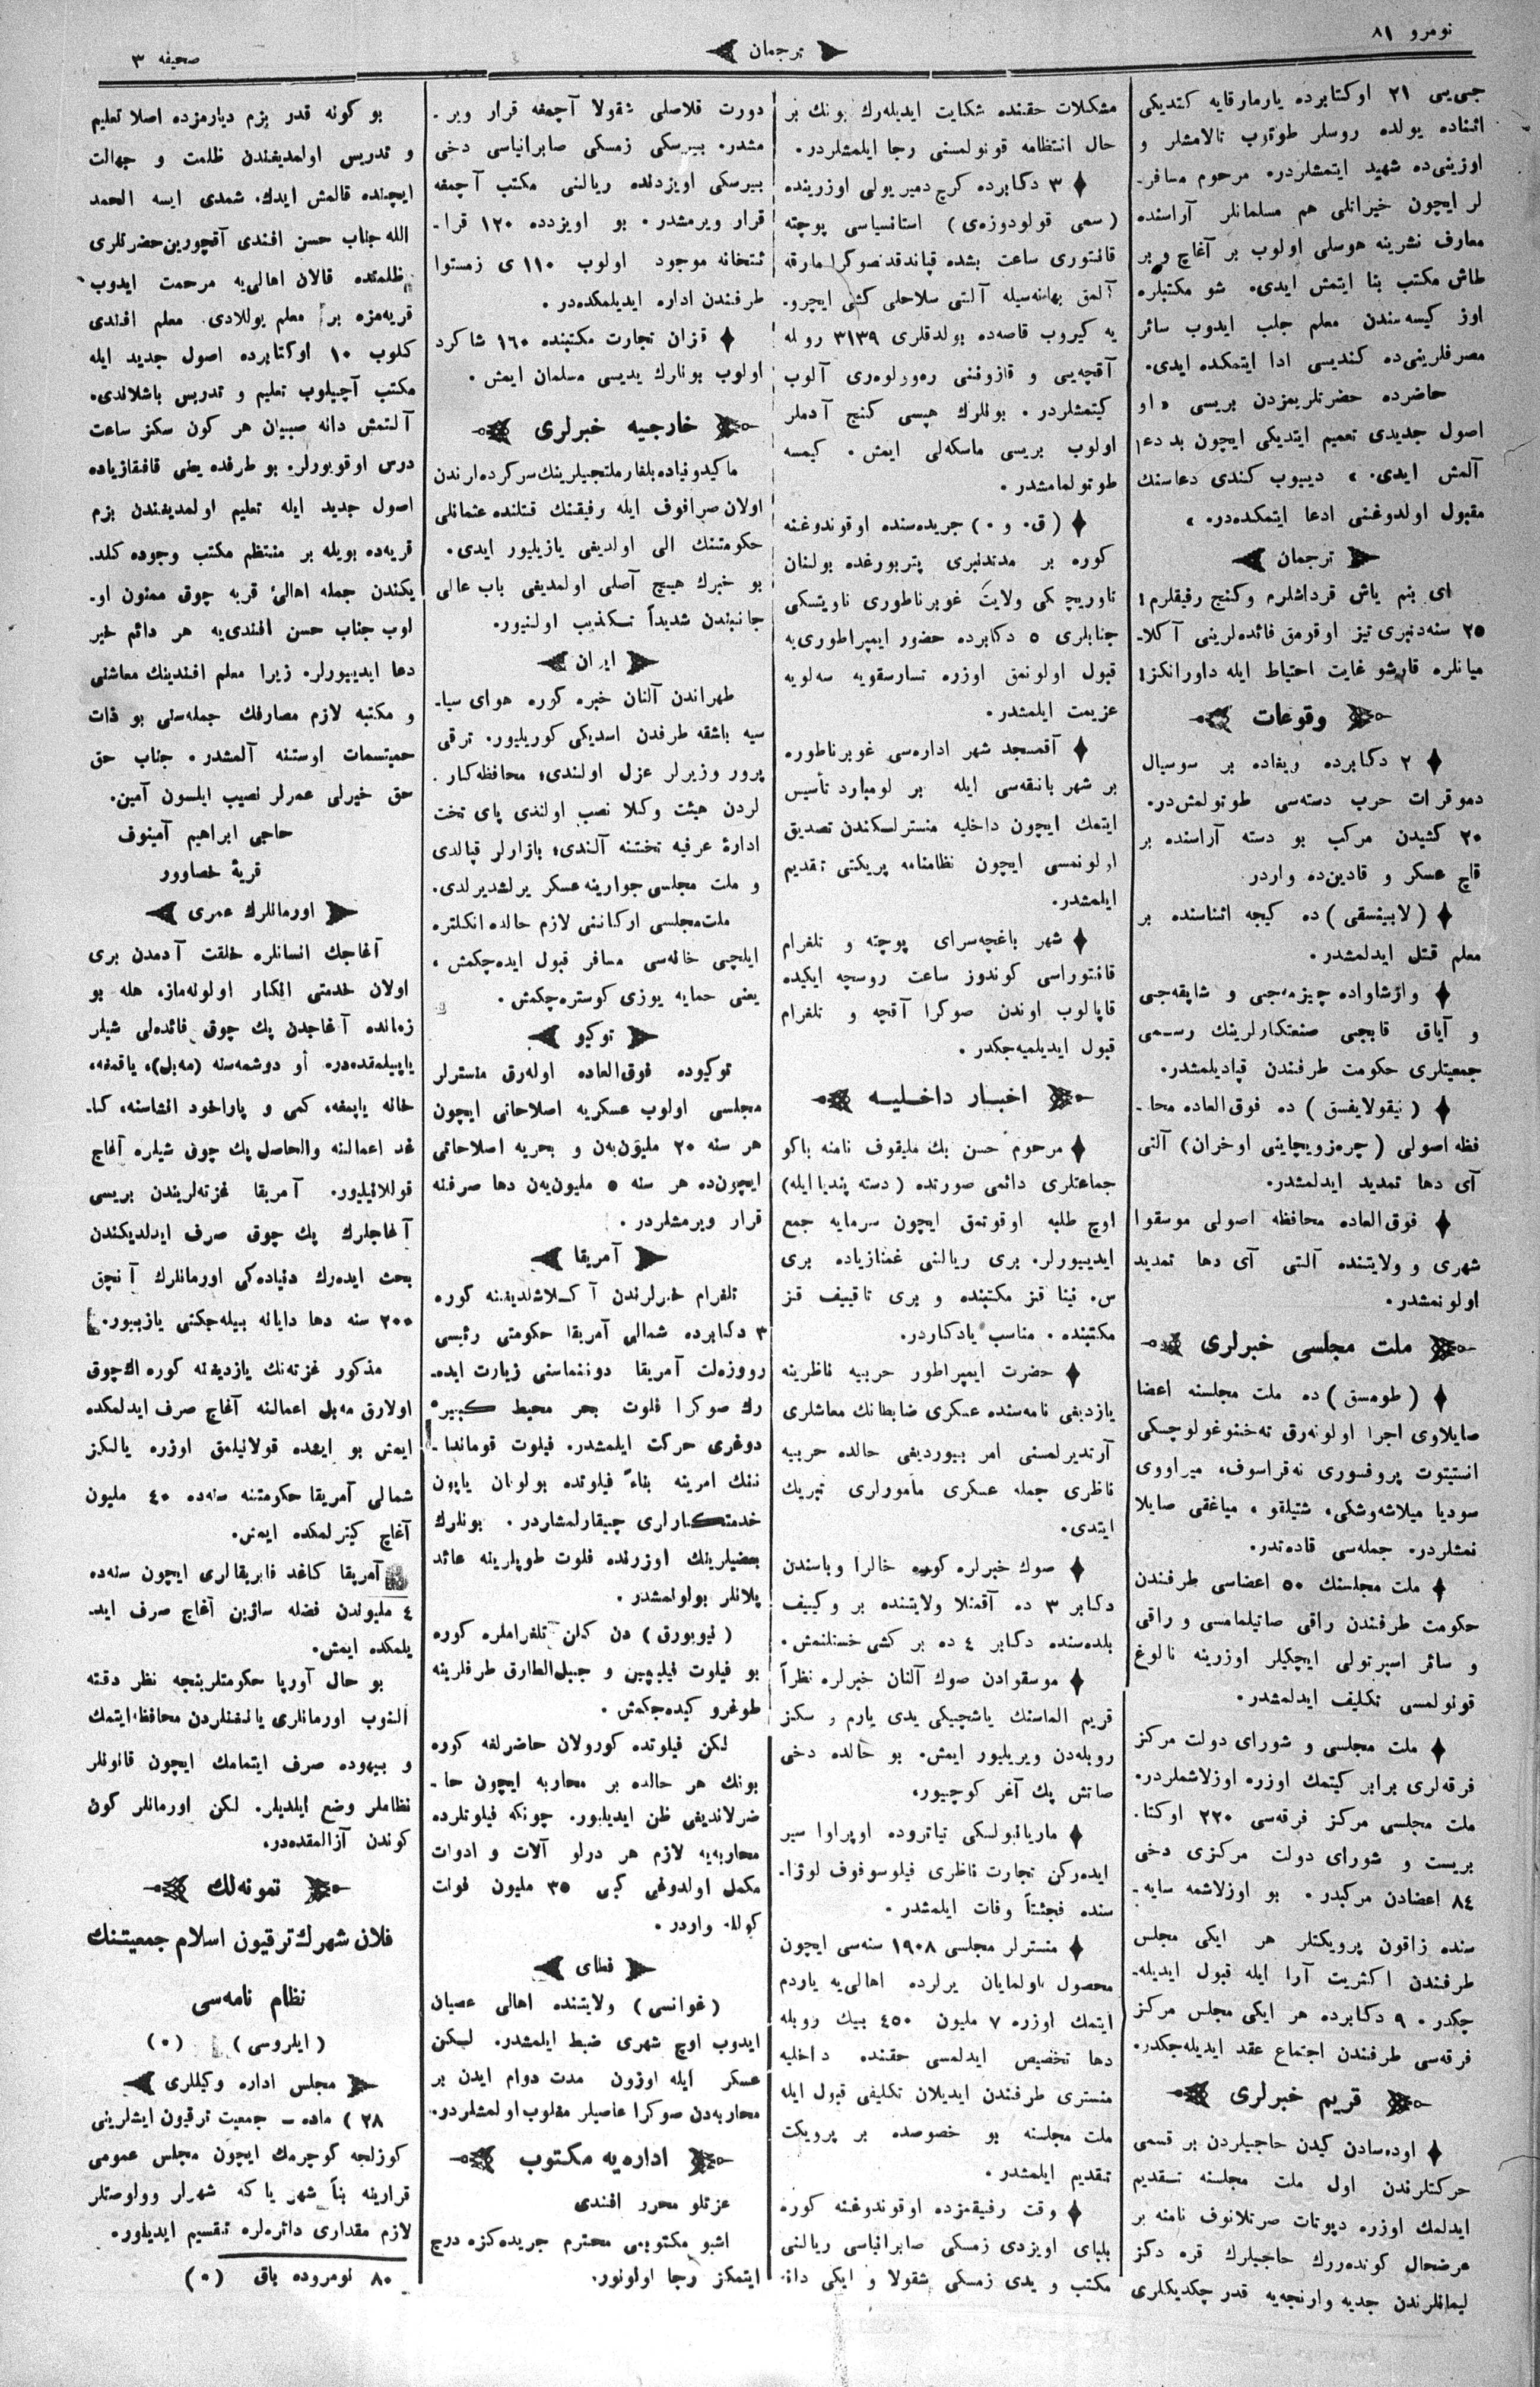 نومرو ۸۱
ترجمان
صحیفه ۳
جی‌یی ۲۱ اوكتابرده یارمارقایه كتدیكی
اثناده یولده روسلر طوتوب تالامشلر و
اوزینی‌ده شهید ایتمشلردر. مرحوم مسافر-
لر ایچون خیراتلی هم مسلمانلر آراسنده
معارف نشرینه هوسلی اولوب بر آغاچ و بر
طاش مكتب بنا ایتمش ایدی. شو مكتبلره
اوز كیسه‌سندن معلم جلب ایدوب سائر
مصرفلرینی‌ده كندیسی ادا ایتمكده ایدی.
حاضرده حضرتلریمزدن بریسی « او
اصول جدیدی تعمیم ایتدیكی ایچون بد دعا
آلمش ایدی. » دییوب كندی دعاسنك
مقبول اولدوغنی ادعا ایتمكده‌در. »
ترجمان
ای بنم یاش قرداشلرم وكنج رفیقلرم!
۲۵ سنه‌دنبری تیز اوقومق فائده‌لرینی آكلا-
میانلره قارشو غایت احتیاط ایله داورانكز!
وقوعات
۲ دكابرده ریغاده بر سوسیال
دموقرات حرب دسته‌سی طوتولمش‌در.
۲۰ كشیدن مركب بو دسته آراسنده بر
قاچ عسكر و قادین‌ده واردر.
(لابینسقی) ده كیجه اثناسنده بر
معلم قتل ایدلمشدر.
وارشاواده چیزمه‌جی و شاپقه‌جی
و آیاق قابجی صنعتكارلرینك رسمی
جمعیتلری حكومت طرفندن قپادیلمشدر.
(نیقولایفسق) ده فوق‌العاده محا-
فظه اصولی (چره‌زویچاینی اوخران) آلتی
آی دها تمدید ایدلمشدر.
فوق‌العاده محافظه اصولی موسقوا
شهری و ولایتنده آلتی آی دها تمدید
اولونمشدر.
ملت مجلسی خبرلری
(طومسق) ده ملت مجلسنه اعضا
صایلاوی اجرا اولونه‌رق ته‌خنوغولوجسكی
انستیتوت پروفسوری نه‌قراسوف، میراووی
سودیا میلاشه‌وشكی، شتیلقو، میاغقی صایلا
نمشلردر. جمله‌سی قاده‌تدر.
ملت مجلسنك ۵۰ اعضاسی طرفندن
حكومت طرفندن راقی صاتیلمامسی و راقی
و سائر اسپرتولی ایچكیلر اوزرینه نالوغ
قونولمسی تكلیف ایدلمشدر.
ملت مجلسی و شورای دولت مركز
فرقه‌لری برابر كیتمك اوزره اوزلاشملردر.
ملت مجلسی مركز فرقه‌سی ۲۲۰ اوكتا-
بریست و شورای دولت مركزی دخی
۸۴ اعضادن مركبدر. بو اوزلاشمه سایه-
سنده زاقون پرویكتلر هر ایكی مجلس
طرفندن اكثریت آرا ایله قبول ایدیله-
جكدر. ۹ دكابرده هر ایكی مجلس مركز
فرقه‌سی طرفندن اجتماع عقد ایدیله‌جكدر.
قریم خبرلری
اوده‌سادن كیدن حاجیلردن بر قسمی
حركتلرندن اول ملت مجلسنه تقدیم
ایدلمك اوزره دپوتات صرتلانوف نامنه بر
عرضحال كونده‌ررك حاجیلرك قره دكز
لیمانلرندن جدیه وارنجه‌یه قدر چكدیكلری
مشكلات حقنده شكایت ایدیله‌رك بونك بر
حال انتظامه قونولمسنی رجا ایلمشلردر.
۳ دكابرده كرچ دمیریولی اوزرینده
(سمی قولودوزه‌ی) استانسیاسی پوچته
قانتوری ساعت بشده قپاندقدنصوكرا مارقه
آلمق بهانه‌سیله آلتی سلاحلی كشی ایچرو-
یه كیروب قاصه‌ده بولدقلری ۳۱۳۹ روبله
آقچه‌یی و قازوننی ره‌وولوه‌ری آلوب
كیتمشلردر. بونلرك هپسی كنج آدملر
اولوب بریسی ماسكه‌لی ایمش. كیمسه
طوتولمامشدر.
(ق. و.) جریده‌سنده اوقوندوغنه
كوره بر مدتدنبری پتربورغده بولنان
تاوریچسكی ولایت غوبرناطوری ناویتسكی
جنابلری ۵ دكابرده حضور ایمپراطوری‌یه
قبول اولونمق اوزره تسارسقویه سه‌لویه
عزیمت ایلمشدر.
آقمسجد شهر اداره‌سی غوبرناطوره
بر شهر بانقه‌سی ایله بر لومبارد تأسیس
ایتمك ایچون داخلیه منسترلكندن تصدیق
اولونمسی ایچون نظامنامه پریكتی تقدیم
ایلمشدر.
شهر باغچه‌سرای پوچته و تلغرام
قانتوراسی كوندوز ساعت روسچه ایكیده
قاپالوب اوندن صوكرا آقچه و تلغرام
قبول ایدیلمیه‌جكدر.
اخبار داخلیه
مرحوم حسن بك ملیقوف نامنه باكو
جماعتلری دائمی صورتده (دسته پندیا ایله)
اوچ طلبه اوقوتمق ایچون سرمایه جمع
ایدییورلر. بری ریالنی غمنازیاده بری
س. نینا قز مكتبنده و بری تاقییف قز
مكتبنده. مناسب یادكاردر.
حضرت ایمپراطور حربیه ناظرینه
یازدیغی نامه‌سنده عسكری ضابطانك معاشلری
آرتدیرلمسنی امر بیوردیغی حالده حربیه
ناظری جمله عسكری مامورلری تبریك
ایتدی.
صوك خبرلره كوره خالرا وباسندن
دكابر ۳ ده آقمنلا ولایتنده بر وكییف
بلده‌سنده دكابر ٤ ده بر كشی خستلنمش.
موسقوادن صوك آلنان خبرلره نظراً
قریم الماسنك یاشچیكی یدی یارم و سكز
روبله‌دن ویریلیور ایمش. بو حالده دخی
صاتش پك آغر كوچیور.
ماریانبولسكی تیاتروده اوپراوا سیر
ایده‌ركن تجارت ناظری فیلوسوفوف لوژا-
سنده فجئتاً وفات ایلمشدر.
منسترلر مجلسی ۱۹۰۸ سنه‌سی ایچون
محصول اولمایان یرلرده اهالی‌یه یاردم
ایتمك اوزره ۷ ملیون ٤۵۰ بیك روبله
دها تخصیص ایدلمسی حقنده داخلیه
منستری طرفندن ایدیلان تكلیفی قبول ایله
ملت مجلسنه بو خصوصده بر پرویكت
تقدیم ایلمشدر.
وقت رفیقمزده اوقوندوغنه كوره
بلبای اویزدی زمسكی صابرانیاسی ریالنی
مكتب و یدی زمسكی شقولا و ایكی دانه
دورت قلاصلی شقولا آچمغه قرار ویر-
مشدر. بیرسكی زمسكی صابرانیاسی دخی
بیرسكی اویزدنده ریالنی مكتب آچمغه
قرار ویرمشدر. بو اویزدده ۱۲۰ قرا-
ئتخانه موجود اولوب ۱۱۰ ی زمستوا
طرفندن اداره ایدیلمكده‌در.
قزان تجارت مكتبنده ۱۶۰ شاكرد
اولوب بونلرك یدیسی مسلمان ایمش.
خارجیه خبرلری
ماكیدونیاده بلغار ملتجیلرینك سركرده‌لرندن
اولان صرافوف ایله رفیقنك قتلنده عثمانلی
حكومتنك الی اولدیغی یازیلیور ایدی.
بو خبرك هیچ آصلی اولمدیغی باب عالی
جانبندن شدیداً تكذیب اولنیور.
ایران
طهراندن آلنان خبره كوره هوای سیا-
سیه باشقه طرفدن اسدیكی كوریلیور. ترقی
پرور وزیرلر عزل اولندی؛ محافظه‌كار-
لردن هیئت وكلا نصب اولندی پای تخت
ادارهٔ عرفیه تختنه آلندی؛ بازارلر قپالدی
و ملت مجلسی جوارینه عسكر یرلشدیرلدی.
ملت‌مجلسی اركاننی لازم حالده انكلتره
ایلچی خانه‌سی مسافر قبول ایده‌جكمش،
یعنی حمایه یوزی كوستره‌جكمش.
توكیو
توكیوده فوق‌العاده اوله‌رق منسترلر
مجلسی اولوب عسكریه اصلاحاتی ایچون
هر سنه ۲۰ ملیون‌یه‌ن و بحریه اصلاحاتی
ایچون‌ده هر سنه ۵ ملیون‌یه‌ن دها صرفنه
قرار ویرمشلردر.
آمریقا
تلغرام خبرلرندن آكلاشلدیغنه كوره
۳ دكابرده شمالی آمریقا حكومتی رئیسی
رووزه‌لت آمریقا دوننماسنی زیارت ایده-
رك صوكرا فلوت بحر محیط كبیره
دوغری حركت ایلمشدر. فیلوت قوماندا-
ننك امرینه بناءً فیلوتده بولونان یاپون
خدمتكارلری چیقارلمشلردر. بونلرك
بعضیلرینك اوزرنده فلوت طوپلرینه عائد
پلانلر بولولمشدر.
(نیویورق) دن كلن تلغراملره كوره
بو فیلوت فیلیپین و جبل‌الطارق طرفلرینه
طوغرو كیده‌جكمش.
لكن فیلوتده كورولان حاضرلغه كوره
بونك هر حالده بر محاربه ایچون حا-
ضرلاندیغی ظن ایدیلیور. چونكه فیلوتلرده
محاربه‌یه لازم هر درلو آلات و ادوات
مكمل اولدوغی كبی ۳۵ ملیون فوات
كولله واردر.
خطای
(غوانسی) ولایتنده اهالی عصیان
ایدوب اوچ شهری ضبط ایلمشدر. لیكن
عسكر ایله اوزون مدت دوام ایدن بر
محاربه‌دن صوكرا عاصیلر مغلوب اولمشلردر.
اداره‌یه مكتوب
عزتلو محرر افندی
اشبو مكتوبمی محترم جریده‌كزه درج
ایتمكز رجا اولونور.
بو كونه قدر بزم دیارمزده اصلا تعلیم
و تدریس اولمدیغندن ظلمت و جهالت
ایچنده قالمش ایدك. شمدی ایسه الحمد
الله جناب حسن افندی آقچورین حضرتلری
ظلمتده قالان اهالی‌یه مرحمت ایدوب
قریه‌مزه بر معلم یوللادی. معلم افندی
كلوب ۱۰ اوكتابرده اصول جدید ایله
مكتب آچیلوب تعلیم و تدریس باشلاندی.
آلتمش دانه صبیان هر كون سكز ساعت
درس اوقویورلر. بو طرفده یعنی قافقازیاده
اصول جدید ایله تعلیم اولمدیغندن بزم
قریه‌ده بویله بر منتظم مكتب وجوده كلد-
یكندن جمله اهالیٔ قریه چوق ممنون او-
لوب جناب حسن افندی‌یه هر دائم خیر
دعا ایدییورلر. زیرا معلم افندینك معاشنی
و مكتبه لازم مصارفك جمله‌سنی بو ذات
حمیتسمات اوستنه آلمشدر. جناب حق
حق خیرلی عمرلر نصیب ایلسون آمین.
حاجی ابراهیم آمینوف
قریهٔ خصاوور
اورمانلرك عمری
آغاجك انسانلره خلقت آدمدن بری
اولان خدمتی انكار اولونه‌ماز. هله بو
زمانده آغاجدن پك چوق فائده‌لی شیلر
یاپیلمقده‌در. أو دوشمه‌سنه (مه‌بل)، یاقمغه،
خانه یاپمغه، كمی و پاراخود انشاسنه، كا-
غد اعمالنه والحاصل پك چوق شیلره آغاج
قوللانیلیور. آمریقا غزته‌لریندن بریسی
آغاجلرك پك چوق صرف ایدلدیكندن
بحث ایده‌رك دنیاده‌كی اورمانلرك آنجق
۲۰۰ سنه دها دایانه بیله‌جكنی یازییور.
مذكور غزته‌نك یازدیغنه كوره ال‌چوق
اولارق مه‌بل اعمالنه آغاج صرف ایدلمكده
ایمش بو ایشده قولانیلمق اوزره یالكز
شمالی آمریقا حكومتنه سنه‌ده ٤۰ ملیون
آغاچ كیترلمكده ایمش.
آمریقا كاغد فابریقالری ایچون سنه‌ده
٤ ملیوندن فضله ساژین آغاج صرف اید-
یلمكده ایمش.
بو حال آوروپا حكومتلرینجه نظر دقته
النوب اورمانلری یانغنلردن محافظه ایتمك
و بیهوده صرف ایتمامك ایچون قانونلر
نظاملر وضع ایلدیلر. لكن اورمانلر كون
كوندن آزالمقده‌در.
نمونه‌لك
فلان شهرك ترقیون اسلام جمعیتنك
نظام نامه‌سی
(ایلروسی) (*)
مجلس اداره وكیللری
۲۸) ماده – جمعیت ترقیون ایشلرینی
كوزلجه كوچرمك ایچون مجلس عمومی
قرارینه بناً شهر یا كه شهرلر وولوصتلر
لازم مقداری دائره‌لره تقسیم ایدیلور.
۸۰ نومروده باق (*)